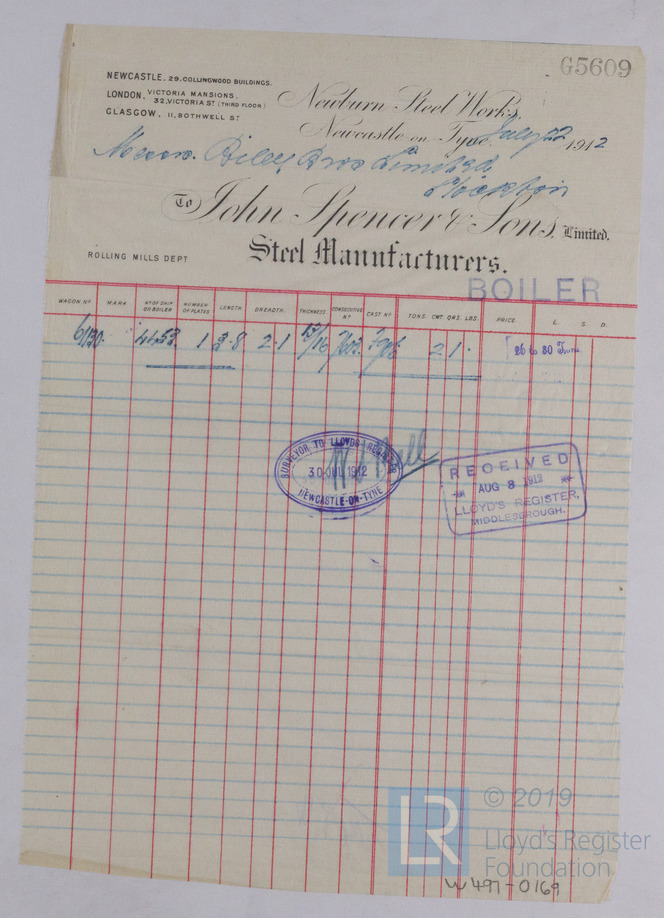 G5609
NEWCASTLE, 29. COLLINGWOOD BUILDINGS.
LONDON, VICTORIA MANSIONS,
32, VICTORIA ST (THIRD FLOOR)
GLASGOW, 11, BOTHWELL ST
Newburn Steel Works,
Newcastle on Tyne July 22 1912
Messrs. Riley Bros Limited
Stockton
To John Spencer & Sons, Limited.
Steel Manufacturers.
ROLLING MILLS DEPT
BOILER
WAGON No MARK No OF SHIP OR BOILER NUMBER OF PLATES LENGTH BREADTH. THICKNESS CONSECUTIVE No CAST No TONS. CWT. QRS. LBS. PRICE. £ S. D.
6130. 4453. 1 3.8 2.1 15/16 2.1. 26 to 30 Tons
SURVEYOR TO LLOYDS REGISTER
30 JUL 1912
NEWCASTLE-ON-TYNE
RECEIVED
AUG 8 1912
LLOYD'S REGISTER,
MIDDLESBROUGH.
LR
© 2019
Lloyd's Register
Foundation
W497-0169